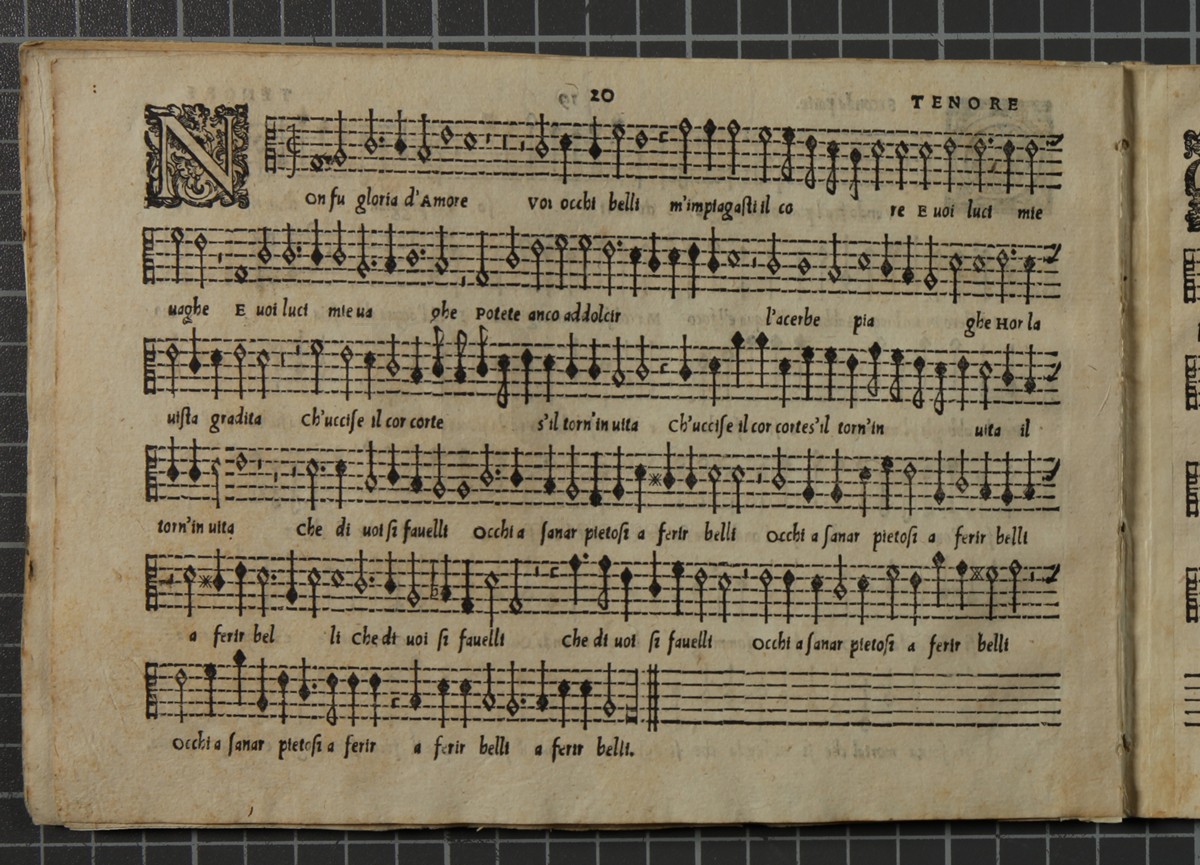 20
TENORE
NOn fu gloria d'Amore Voi occhi belli m'impiagasti il co re E uoi luci mie
uaghe E uoi luci mie ua ghe Potete anco addolcir l'acerbe pia ghe Hor la
uista gradita Ch'uccise il cor corte s'il torn'in uita Ch'uccise il cor cortes'il torn'in uita il
torn'in uita Che di uoi si fauelli Occhi a sanar pietosi a ferir belli Occhi a sanar pietosi a ferir belli
a ferir bel li Che di uoi si fauelli Che di uoi si fauelli Occhi a sanar pietosi a ferir belli
Occhi a sanar pietosi a ferir a ferir belli a ferir belli.